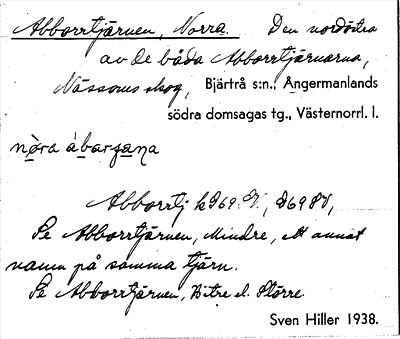 Abborrtjärnen, Norra. Den nordöstra
av de båda Abborrtjärnarna,
Nässoms skog, Bjärtrå s:n., Ångermanlands
södra domsagas tg., Västernorrl. l.
nò̱ra ábarʒa̱na
Abborrtj k D69 V., D69 8V,
Se Abborrtjärnen, Mindre, ett annat
namn på samma tjärn.
Se Abborrtjärnen, Bitre el. Större.
Sven Hiller 1938.